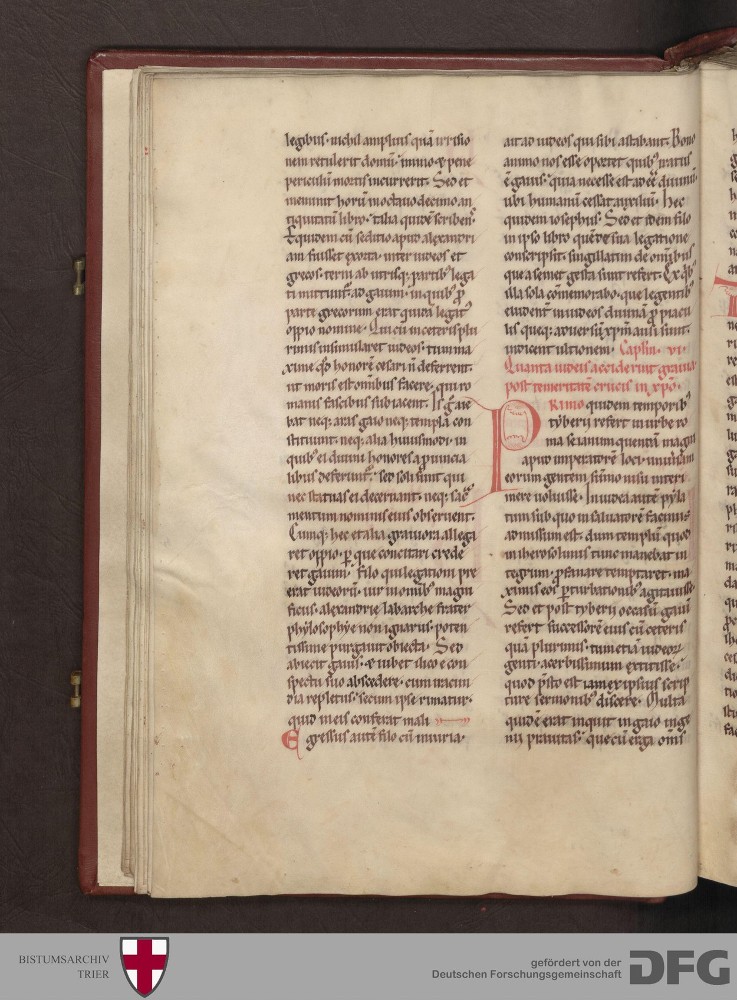 legibus· nichil amplius quā irrisio
nem retulerit domū· immo ⁊ pene
periculū mortis incurrerit· Sed et
meminit horū in octauo decimo an
tiquitatū libro· talia quidē scribens·
Et quidem cū seditio apud alexandri
am fuisset exorta· inter iudeos et
grecos· terni ab utrisq; partib; lega
ti mittunt᷑· ad gaium· in quib; ꝓ
parte grecorum erat quidā legat᷒
appio nomine· Qui cū in ceteris plu
rimis insimularet iudeos· tum ma
xime qđ honorē cesari ñ deferrent·
ut moris est omībus facere· qui ro
manis fascibus subiacent· Is ḡ aie
bat neq; aras gaio neq; templa con
stituunt· neq; alia huiusmodi· in
quib; ei diuini honores a ꝓuincia
libus deferunt᷑· sed soli sunt qui
nec statuas ei decernant· neq; sac̄
mentum nominis eius obseruent·
Cumq; hec et alia grauiora allega
ret appio· ꝑ que concitari crede
ret gaium· filo qui legationi pre
erat iudeorū· uir in omīb; magni
ficus· alexandrie labarche frater
phylosophye non ignarus· poten
tissime purgauit obiecta· Sed
abiecit gaius· ⁊ iubet ilico e con
spectu suo abscedere· cum iracun
dia repletus· secum ipse rimatur·
quid in eis conferat mali
Egressus autē filo cū iniuria·
ait ad iudeos qui sibi astabant· Bono
animo nos esse oportet quib; iratus
ē gaius· quia necesse est adēē diuinū
ubi humanū cessat auxiliū· Hec
quidem iosephus· Sed et idem filo
in ipso libro quē de sua legatione
conscripsit· singillatim de omībus
que a semet gesta sunt refert· Ex qb;
illa sola cōmemorabo· que legentib;
euident̄ in iudeos diuinā ꝓ piacu
lis queq; aduersū xp̄m ausi sunt·
indicent ultionem· Caplm̄· vi·
Quanta iudeis acciderint grauia
post temeritatē crucis in xp̄o·
PRimo quidem temporib;
tyberij refert in urbe ro
ma seianum quendā magnū
apud imperatorē loci· uniuersam
eorum gentem sūmo nisu interi
mere uoluisse· In iudea autē pyla
tum sub quo in saluatorē facinus
admissum est· dum templū quod
in iherosolimis tunc manebat in
tegrum· ꝓfanare temptaret· ma
ximis eos ꝑturbationib; agitauisse
Sed et post tyberij occasū gaiū
refert successorē eius cū ceteris
quā plurimis· tum etiā iudeoꝝ
genti· acerbissimum extitisse·
quod p̄sto est iam ex ipsius scrip
ture sermonib; discere· Multa
quidē erat inquit in gaio inge
nij prauitas· que cū erga om̄s
BISTUMSARCHIV
TRIER
gefördert von der
Deutschen Forschungsgemeinschaft
DFG